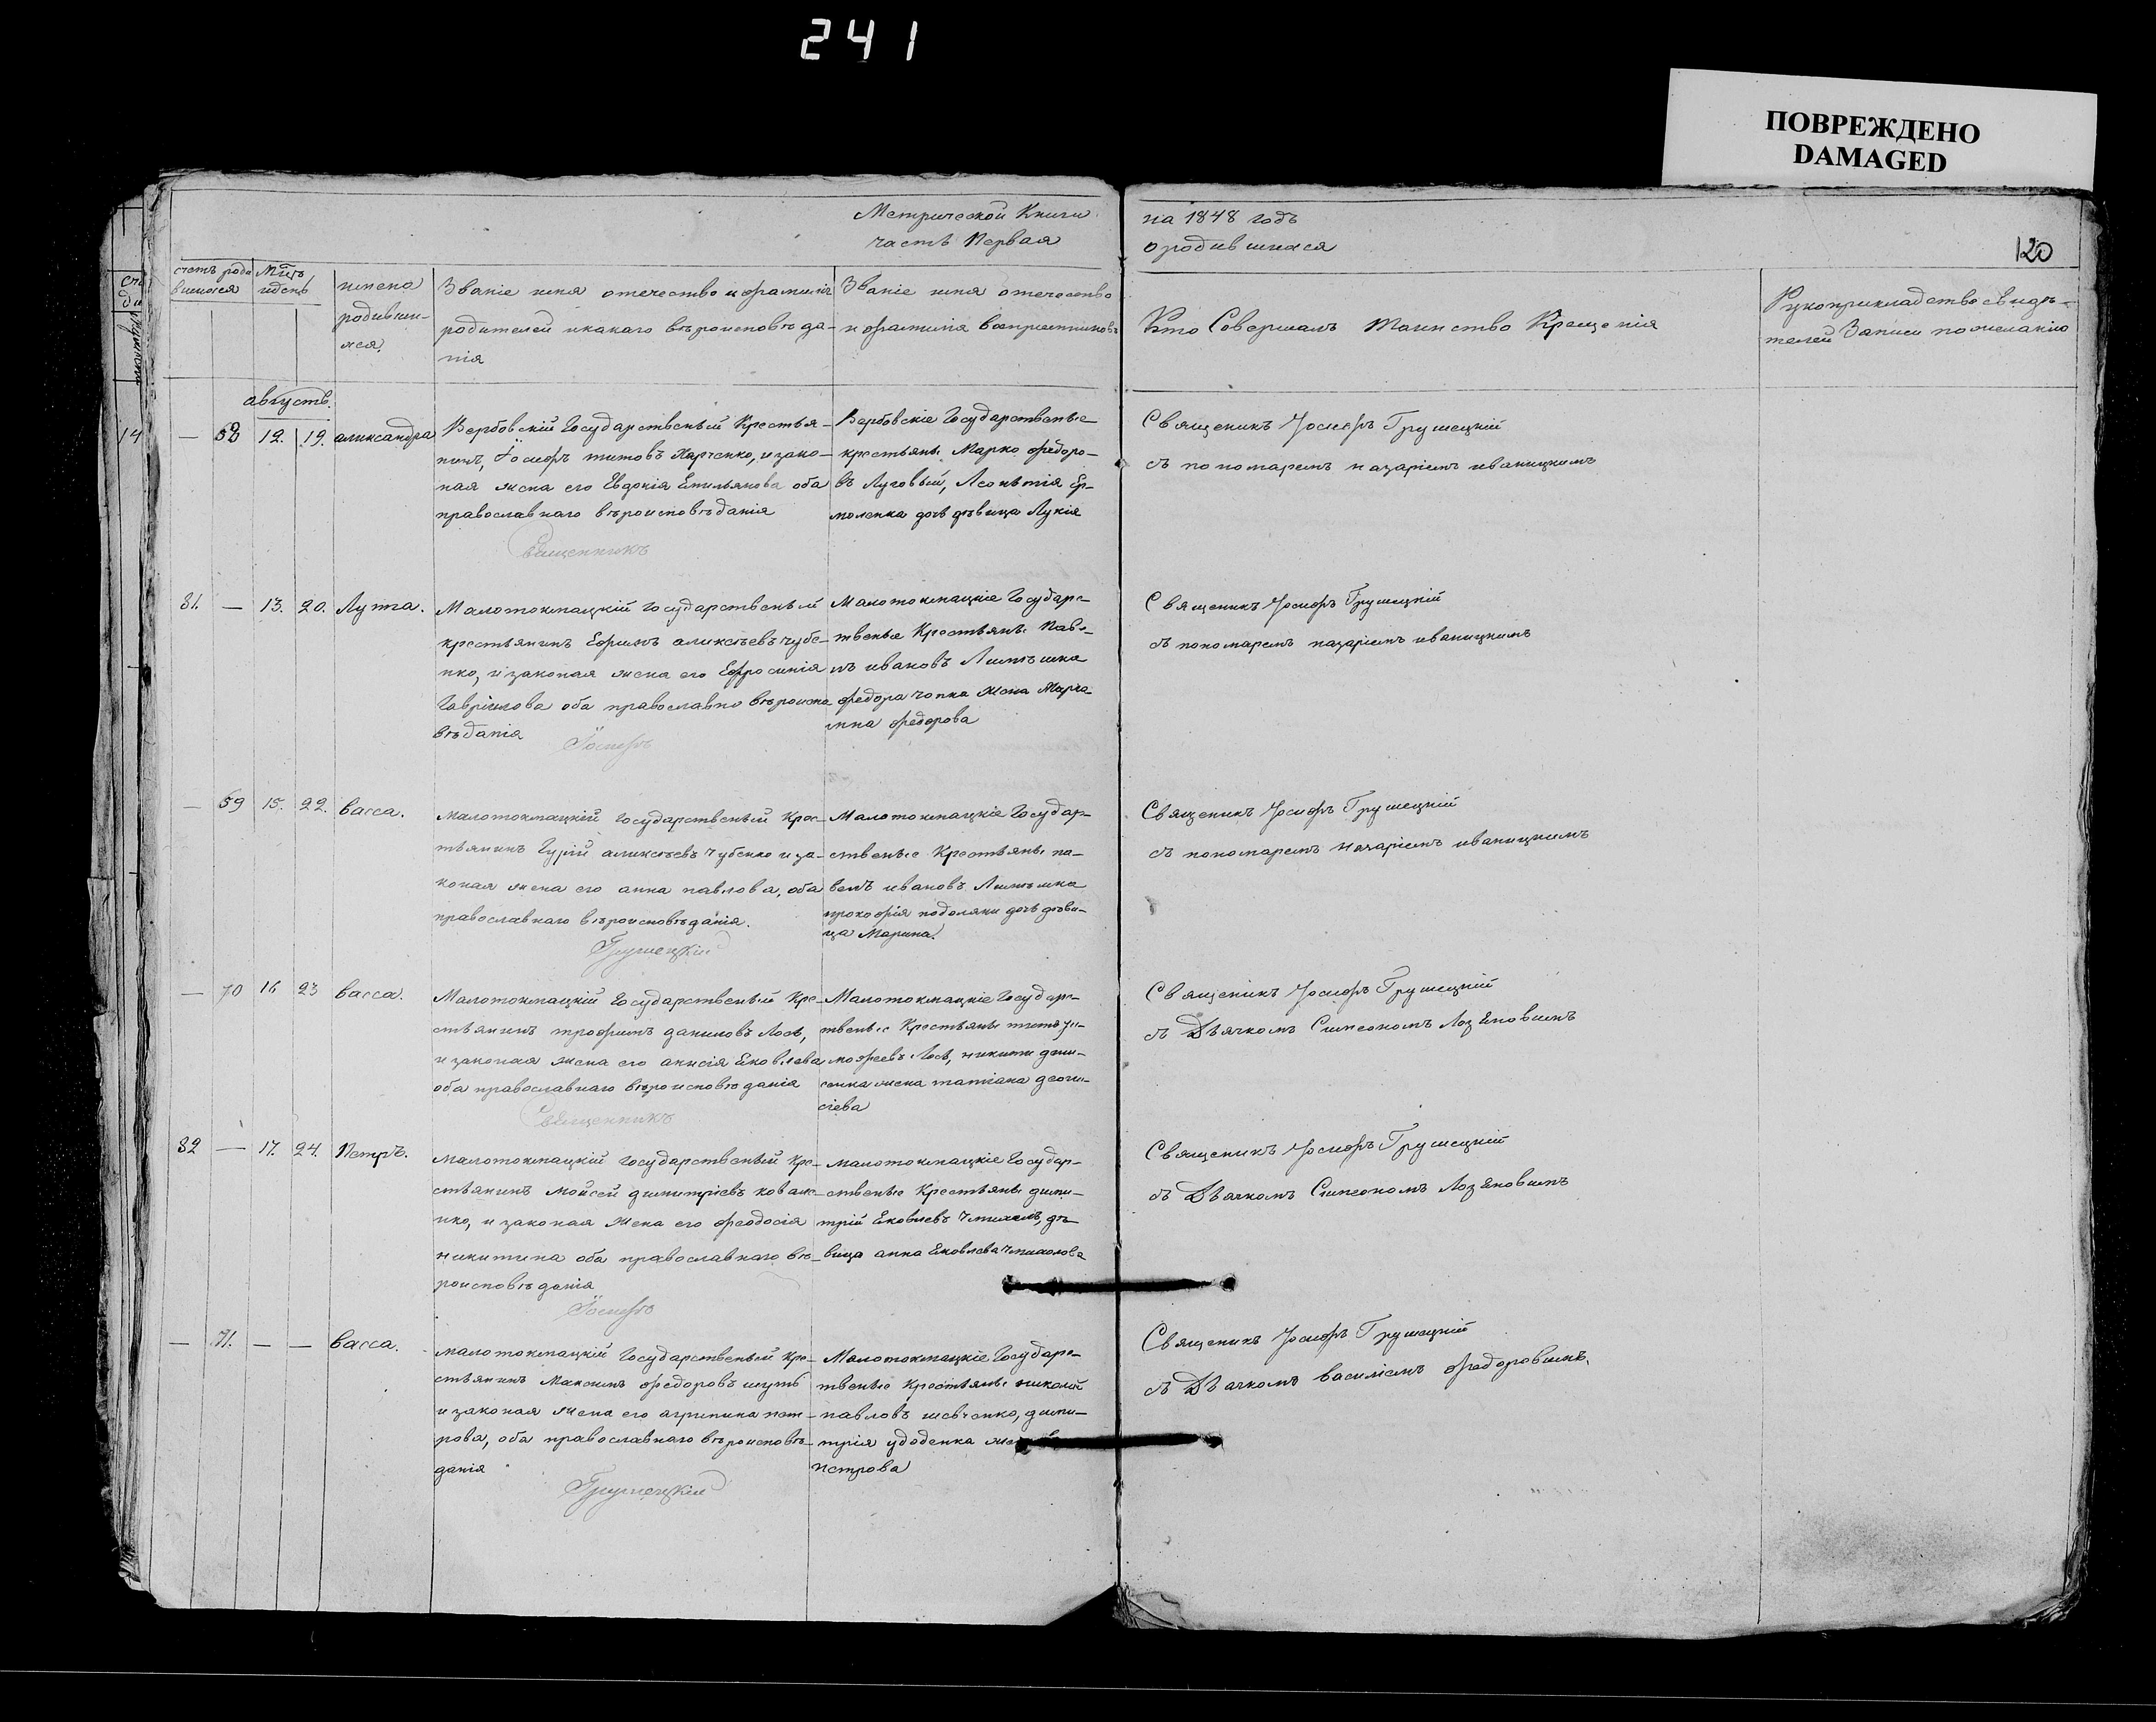 241
ПОВРЕЖДЕНО
DAMAGED
Метрической Книги
часть Первая
на 1848 годъ
о родившихся
120
счетъ роди
вшихся
Мцъ
и день
имена
родивши-
хся.
Званіе имя отечество и фамилія
родителей и какаго вѣроисповѣда-
нія
Званіе имя отечество
и фамилія воспріемниковъ
Кто Совершалъ таинство Крещенія
Рукоприкладство свидѣ-
телей Записи по желанію
августъ.
14
— 68 12. 19. александра
Вербовскій Государственый Крестья-
нинъ, Іосифъ титовъ Харченко, и зако-
ная жена его Евдокія Емильянова оба
православнаго вѣроисповѣданія
Священникъ
Вербовскіе Государственые
крестьяне Марко федоро-
въ Луговый, Леонтія Ер-
моленка дочь дѣвица Лукія
Священикъ Іосифъ Грушецкій
съ пономаремъ назаріемъ иваницкимъ
81. — 13. 20. Луппа.
Малотокмацкій государственый
крестьянинъ Ефимъ аликсѣевъ чубе-
нко, и законая жена его Ефросинія
Гавріилова оба православно вѣроиспо
вѣданія
Іосифъ
Малотокмацкіе Государс-
твеные Крестьяне Паве-
лъ ивановъ
федора чопка жена Марia-
мна федорова
Священикъ Іосифъ Грушецкій
съ пономаремъ назаріемъ иваницкимъ
— 69 15. 22. васса.
Малотокмацкій государственый Крес-
тьянинъ Гурій аликсѣевъ чубенко и за-
коная жена его анна павлова, оба
православнаго вѣроисповѣданія.
Грушецкій
Малотокмацкіе Государ-
ственые Крестьяне па-
велъ ивановъ
прокофія подоляки дочь дѣви-
ца Марина.
Священикъ Іосифъ Грушецкій
съ пономаремъ назаріемъ иваницкимъ
— 70 16 23 васса.
Малотокмацкій Государственый Кре-
стьянинъ трофимъ даниловъ Лось,
и законая жена его анисія Ековлева
оба православнаго вѣроисповѣданія
Священникъ
Малотокмацкіе Государс-
твеные Крестьяне
мофеевъ Лось, никити дени-
сенка жена татіана деони-
сіева
Священикъ Іосифъ Грушецкій
съ Дьячкомъ Симеономъ Лозеновимъ
82 — 17. 24. Петръ.
Малотокмацкій государственый Кре-
стьянинъ Мойсей димитріевъ ковале-
нко, и законая жена его феодосія
никитина оба православнаго вѣ-
роисповѣданія
Іосифъ
малотокмацкіе Государ-
ственые Крестьяне дими-
трій Ековлевъ Чмихалъ, дѣ-
вица анна Ековлева Чмихолова
Священикъ Іосифъ Грушецкій
съ Дьячкомъ Симеономъ Лозеновимъ
— 71. — — васса.
малотокмацкій Государственый Кре-
стьянинъ Максимъ федоровъ шуть
и законая жена его агрипина пет-
рова, оба православнаго вѣроисповѣ-
данія
Грушецкій
Малотокмацкіе Государс-
твеные Крестьяне николай
павловъ шевченко, дими-
трія удоденка
Петрова
Священикъ Іосифъ Грушецкій
съ Дьячкомъ василіемъ федоровимъ.